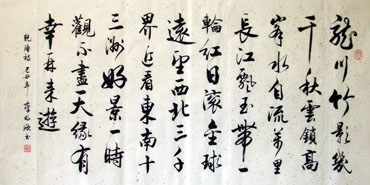 龍川竹影幾
千秋雲鎖高
峯水自流萬里
長江飄玉帶一
輪紅日滾金球
遠望西北三千
界近看東南十
三洲好景一時
觀不盡天緣有
幸再來遊
乾隆詩